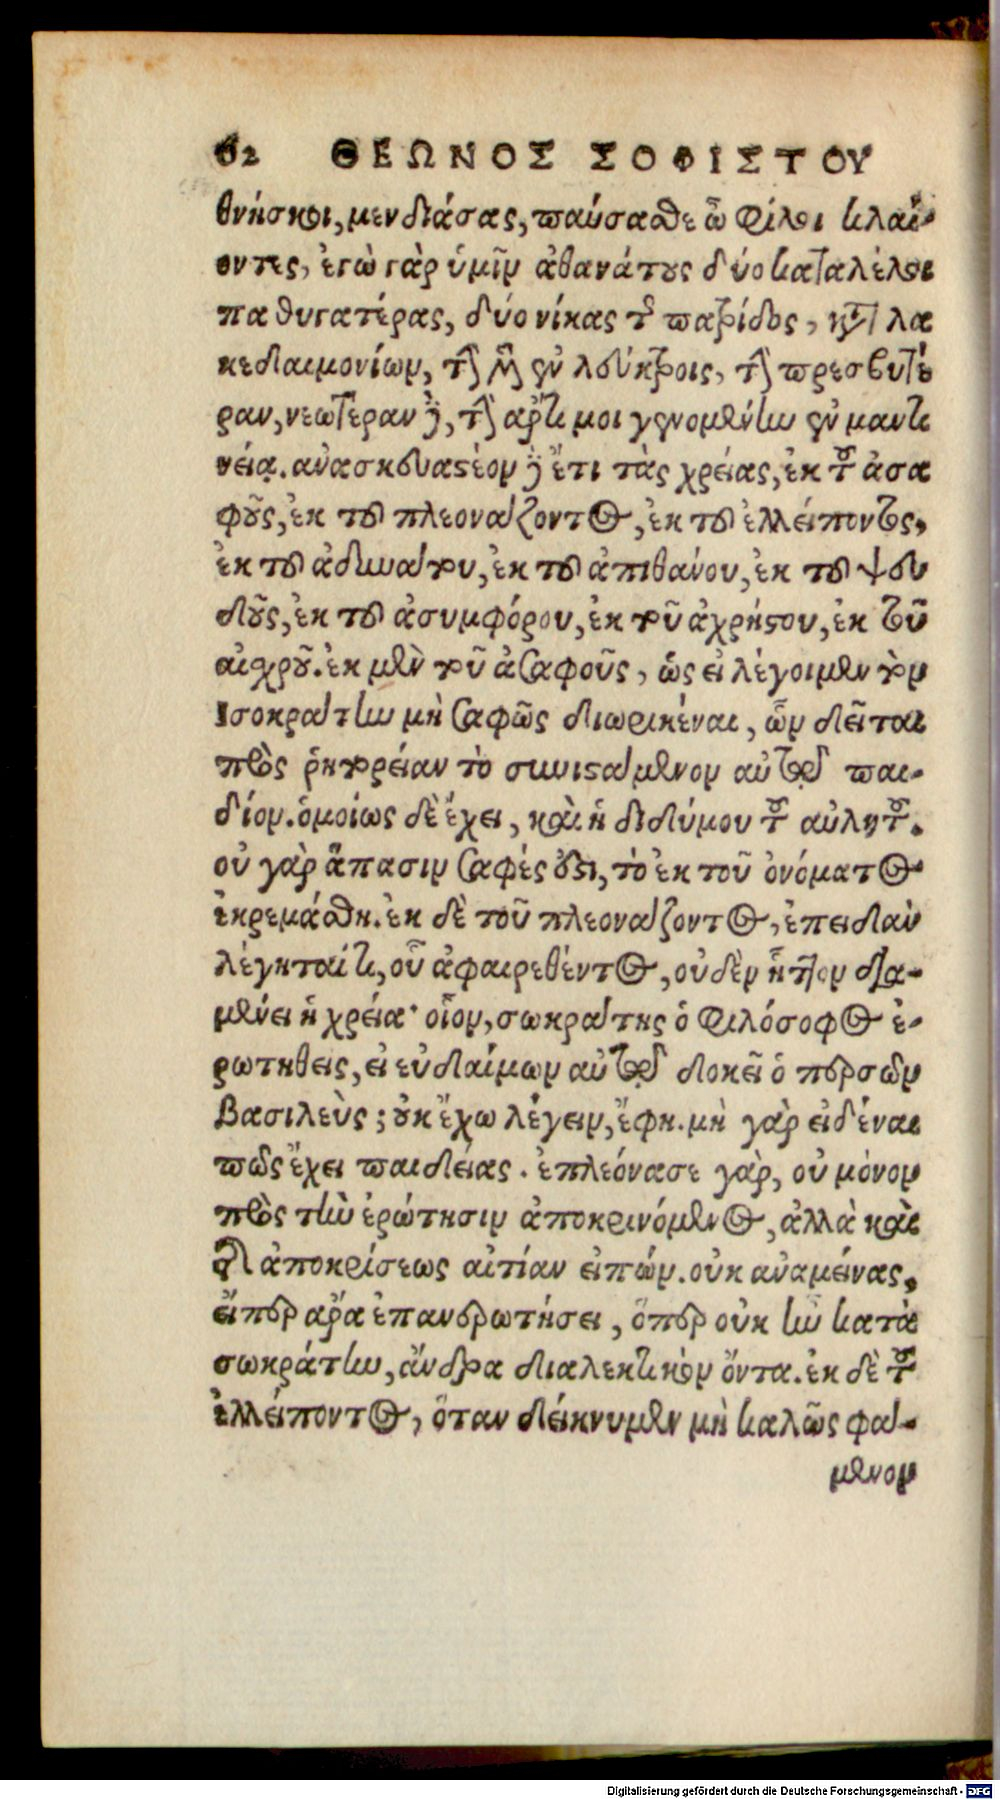 62 ΘΕΩΝΟΣ ΣΟΦΙΣΤΟΥ
θνήσκοι, μενδιάσας, παύσασθε ὦ φίλοι κλαί-
οντες, ἐγὼ γὰρ ὑμῖν ἀθανάτους δύο καταλέλοι
πα θυγατέρας, δύο νίκας τῆς πατρίδος, κατὰ λα
κεδαιμονίων, τὴν μὲν ἐν λεύκτροις, τὴν πρεσβυτέ
ραν, νεωτέραν δὲ, τὴν ἄρτι μοι γινομένην ἐν μαντι
νείᾳ. ἀνασκευαστέον δὲ ἔτι τὰς χρείας, ἐκ τοῦ ἀσα
φοῦς, ἐκ τοῦ πλεονάζοντος, ἐκ τοῦ ἐλλείποντος,
ἐκ τοῦ ἀδυνάτου, ἐκ τοῦ ἀπιθάνου, ἐκ τοῦ ψευ
δοῦς, ἐκ τοῦ ἀσυμφόρου, ἐκ τοῦ ἀχρήστου, ἐκ τοῦ
αἰσχροῦ. ἐκ μὲν τοῦ ἀσαφοῦς, ὡς εἰ λέγοιμεν τὸν
Ισοκράτην μὴ σαφῶς διωρικέναι, ὧν δεῖται
πρὸς ῥητορείαν τὸ συνιστάμενον αὐτῷ παι-
δίον. ὁμοίως δὲ ἔχει, καὶ ἡ διδύμου τοῦ αὐλητοῦ.
οὐ γὰρ ἅπασιν σαφές ἐστι, τὸ ἐκ τοῦ ὀνόματος
ἐκρεμάσθη. ἐκ δὲ τοῦ πλεονάζοντος, ἐπειδὰν
λέγηταί τι, οὗ ἀφαιρεθέντος, οὐδὲν ἧττον δια-
μένει ἡ χρεία· οἷον, σωκράτης ὁ φιλόσοφος ἐ-
ρωτηθεις, εἰ εὐδαίμων αὐτῷ δοκεῖ ὁ περσῶν
βασιλεὺς; οὐκ ἔχω λέγειν, ἔφη. μὴ γὰρ εἰδέναι
πῶς ἔχει παιδείας. ἐπλεόνασε γὰρ, οὐ μόνον
πρὸς τὴν ἐρώτησιν ἀποκρινόμενος, ἀλλὰ καὶ
τῆς ἀποκρίσεως αἰτίαν εἰπών. οὐκ ἀναμείνας,
εἴπερ ἄρα ἐπανερωτήσει, ὅπερ οὐκ ἦν κατὰ
σωκράτην, ἄνδρα διαλεκτικὸν ὄντα. ἐκ δὲ τοῦ
ἐλλείποντος, ὅταν δείκνυμεν μὴ καλῶς φά-
μενον
Digitalisierung gefördert durch die Deutsche Forschungsgemeinschaft - DFG